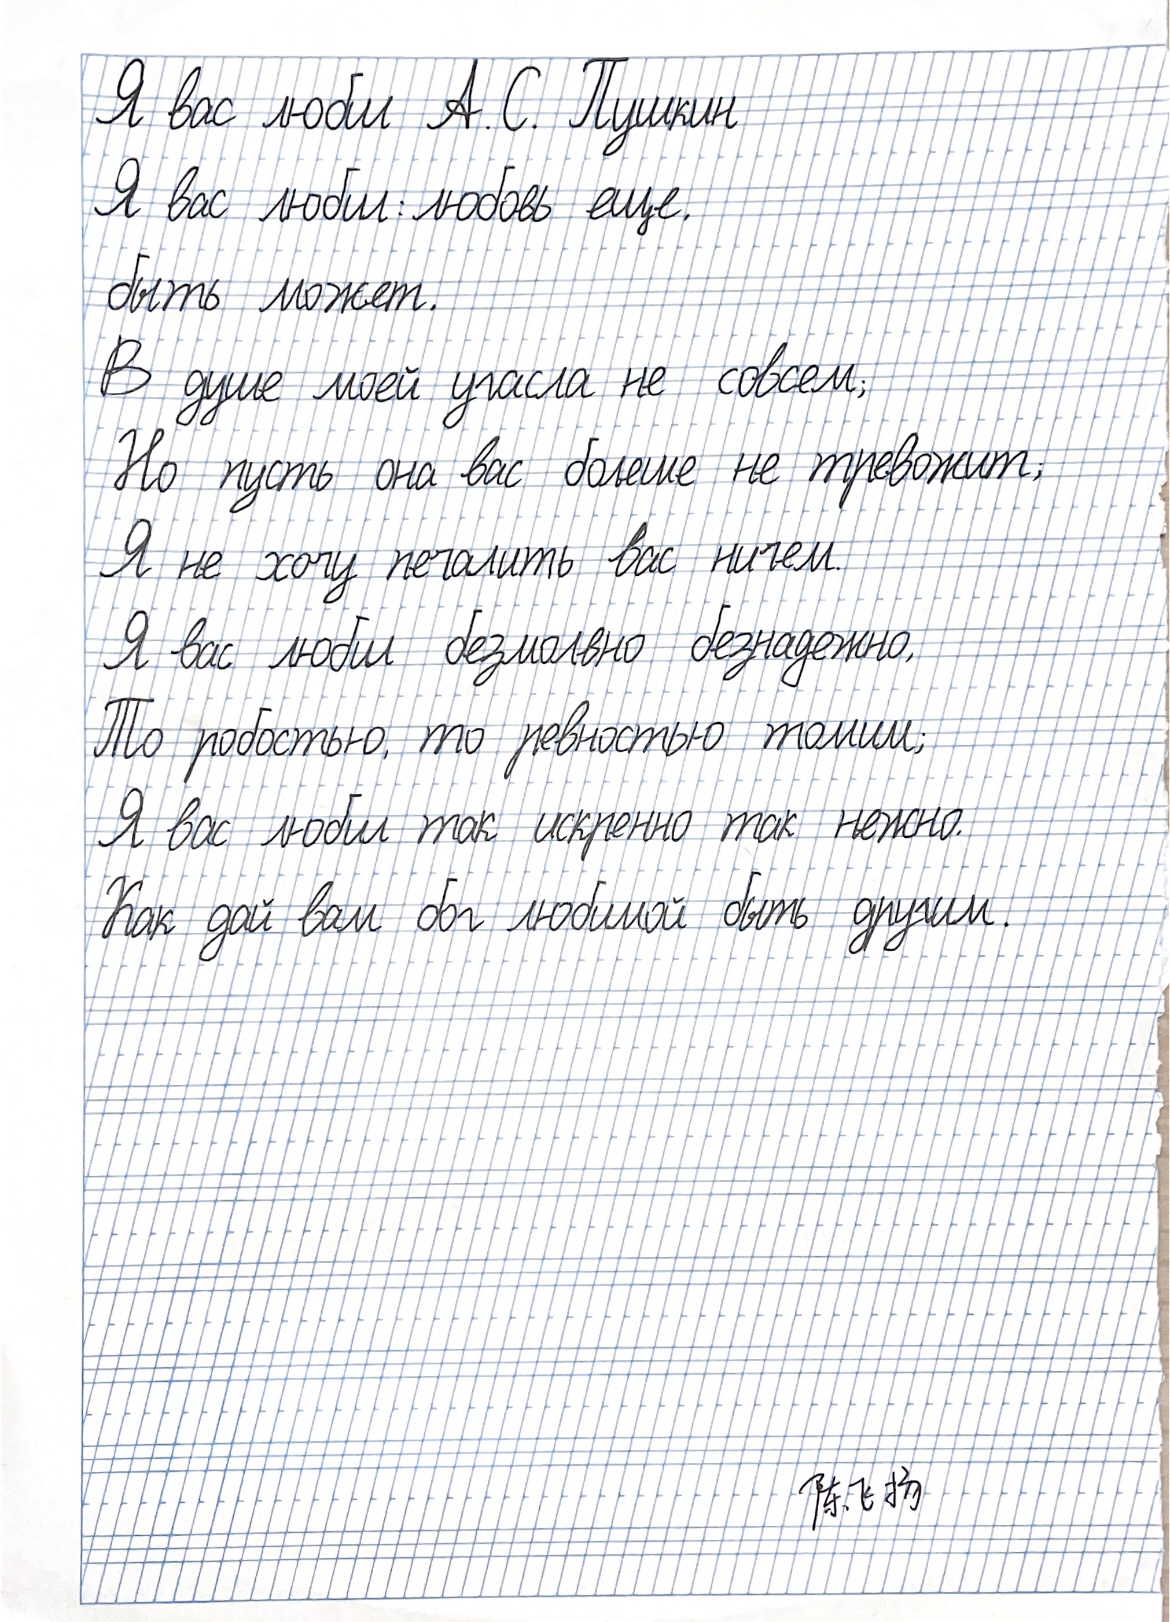 Я вас любил А.С. Пушкин
Я вас любил: любовь еще,
быть может.
В душе моей угасла не совсем;
Но пусть она вас больше не тревожит;
Я не хочу печалить вас ничем.
Я вас любил безмолвно безнадежно,
То робостью, то ревностью томим;
Я вас любил так искренно так нежно.
Как дай вам бог любимой быть другим.
陈飞扬